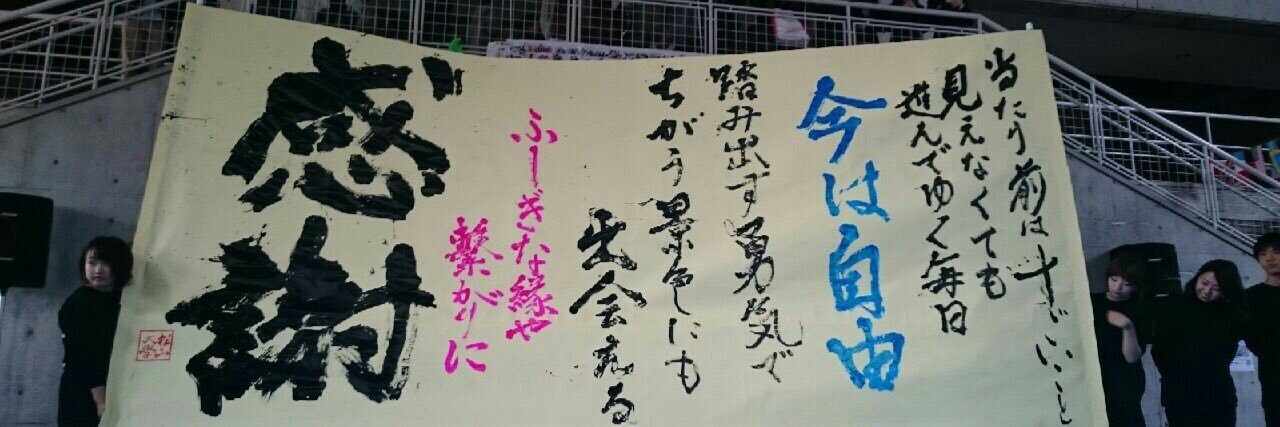 当たり前は いいこと
見えなくても
進んでゆく毎日
今は自由
踏み出す勇気で
ちがう景色にも
出会える
ふしぎな縁や
繋がりに
感謝
松山
大学